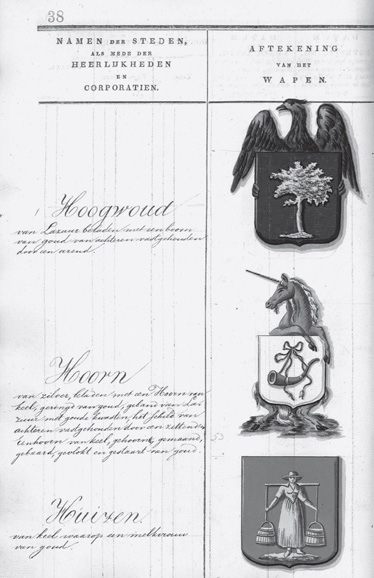 38
NAMEN DER STEDEN,
ALS MEDE DER
HEERLIJKHEDEN
EN
CORPORATIEN.
AFTEKENING
VAN HET
WAPEN.
Hoogwoud
van Lazuur beladen met een boom
van goud van achteren vastgehouden
door een arend.
Hoorn
van zilver, beladen met een Hoorn van
keel, geringd van goud, geband van la-
zuur met goude kwasten, het schild van
achteren vastgehouden door een zittende
Eenhoorn van keel, gehoornd, gemaand,
gebaard, gevlokt en gestaart van goud.
Huizen
van keel waarop een melkvrouw
van goud.